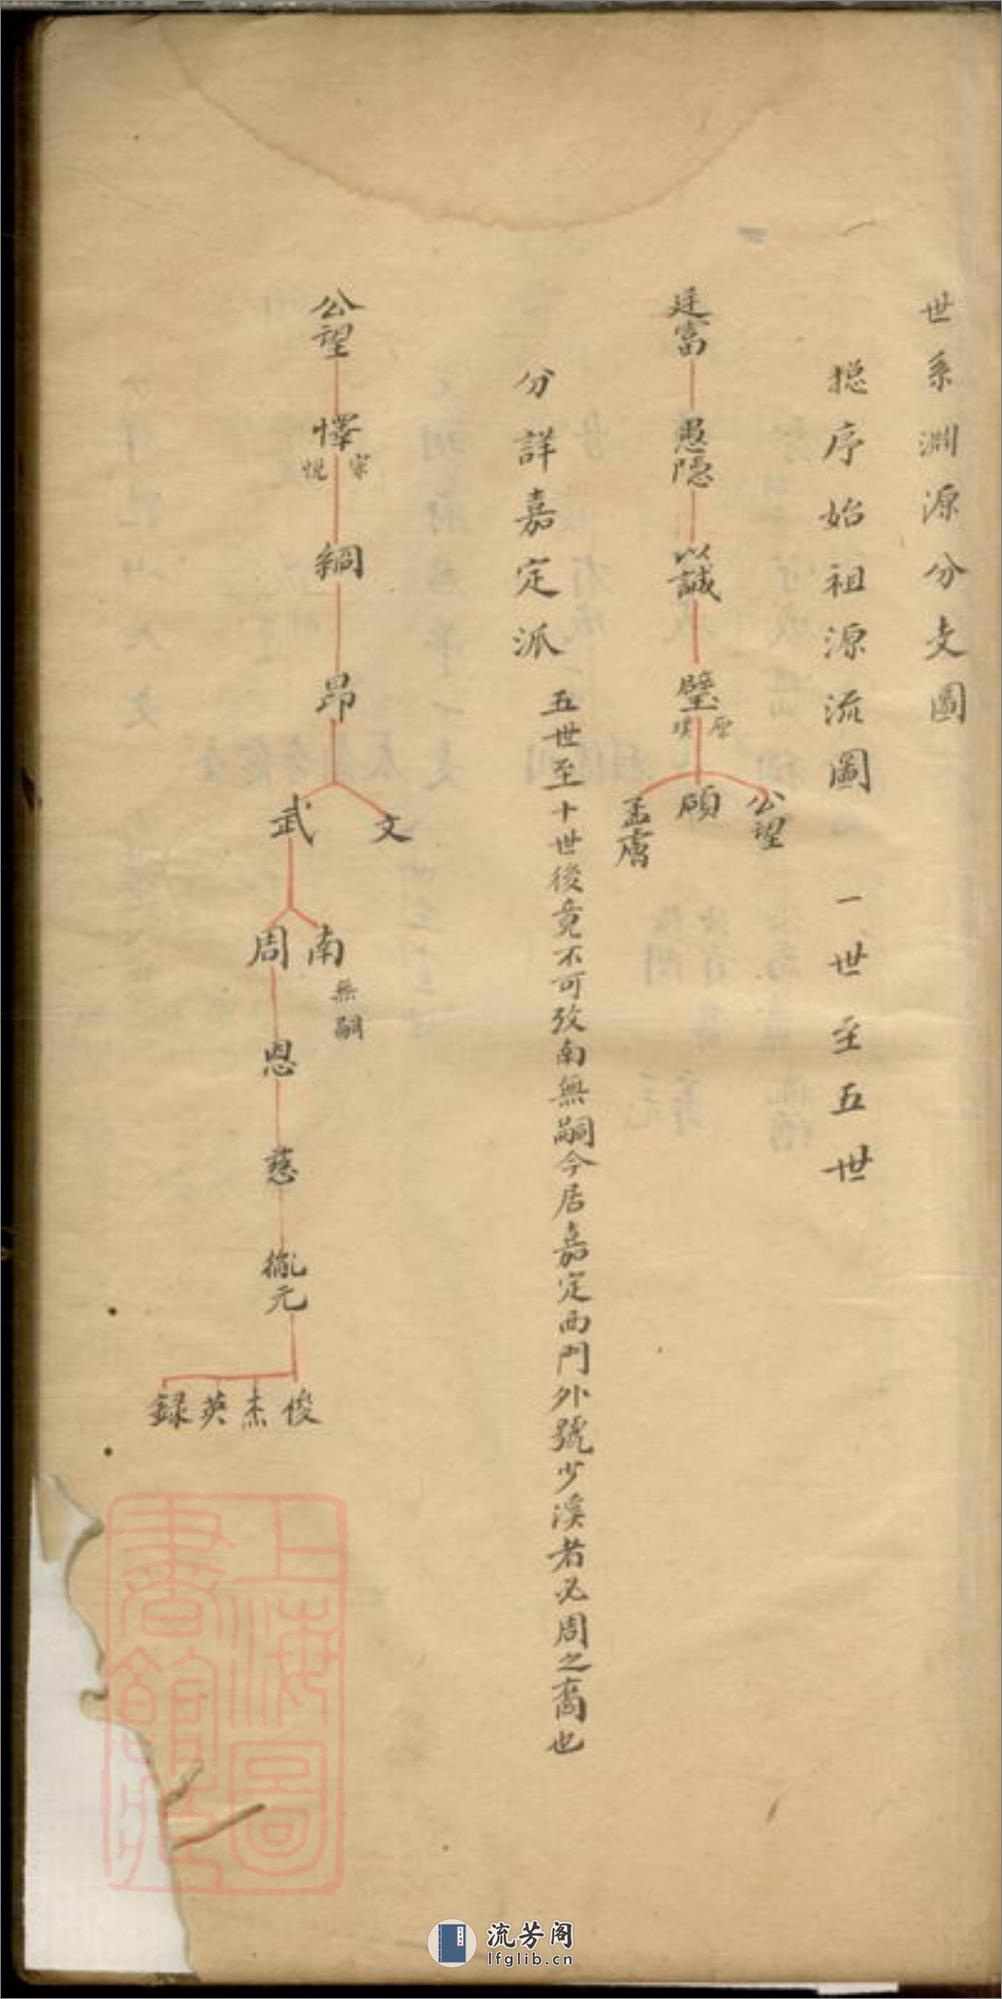 世系淵源分支圖
摠序始祖源流圖 一世至五世
廷富
愚隱
以誠
璧
原
璞
公望
碩
孟膚
分詳嘉定派
五世至十世後竟不可攷南無嗣今居嘉定西門外號少溪者必周之裔也
公望
懌
宗
悅
綱
昂
文
武
南
無嗣
周
恩
慈
胤元
俊
杰
英
録
上海圖
書館藏
流芳阁
lfglib.cn